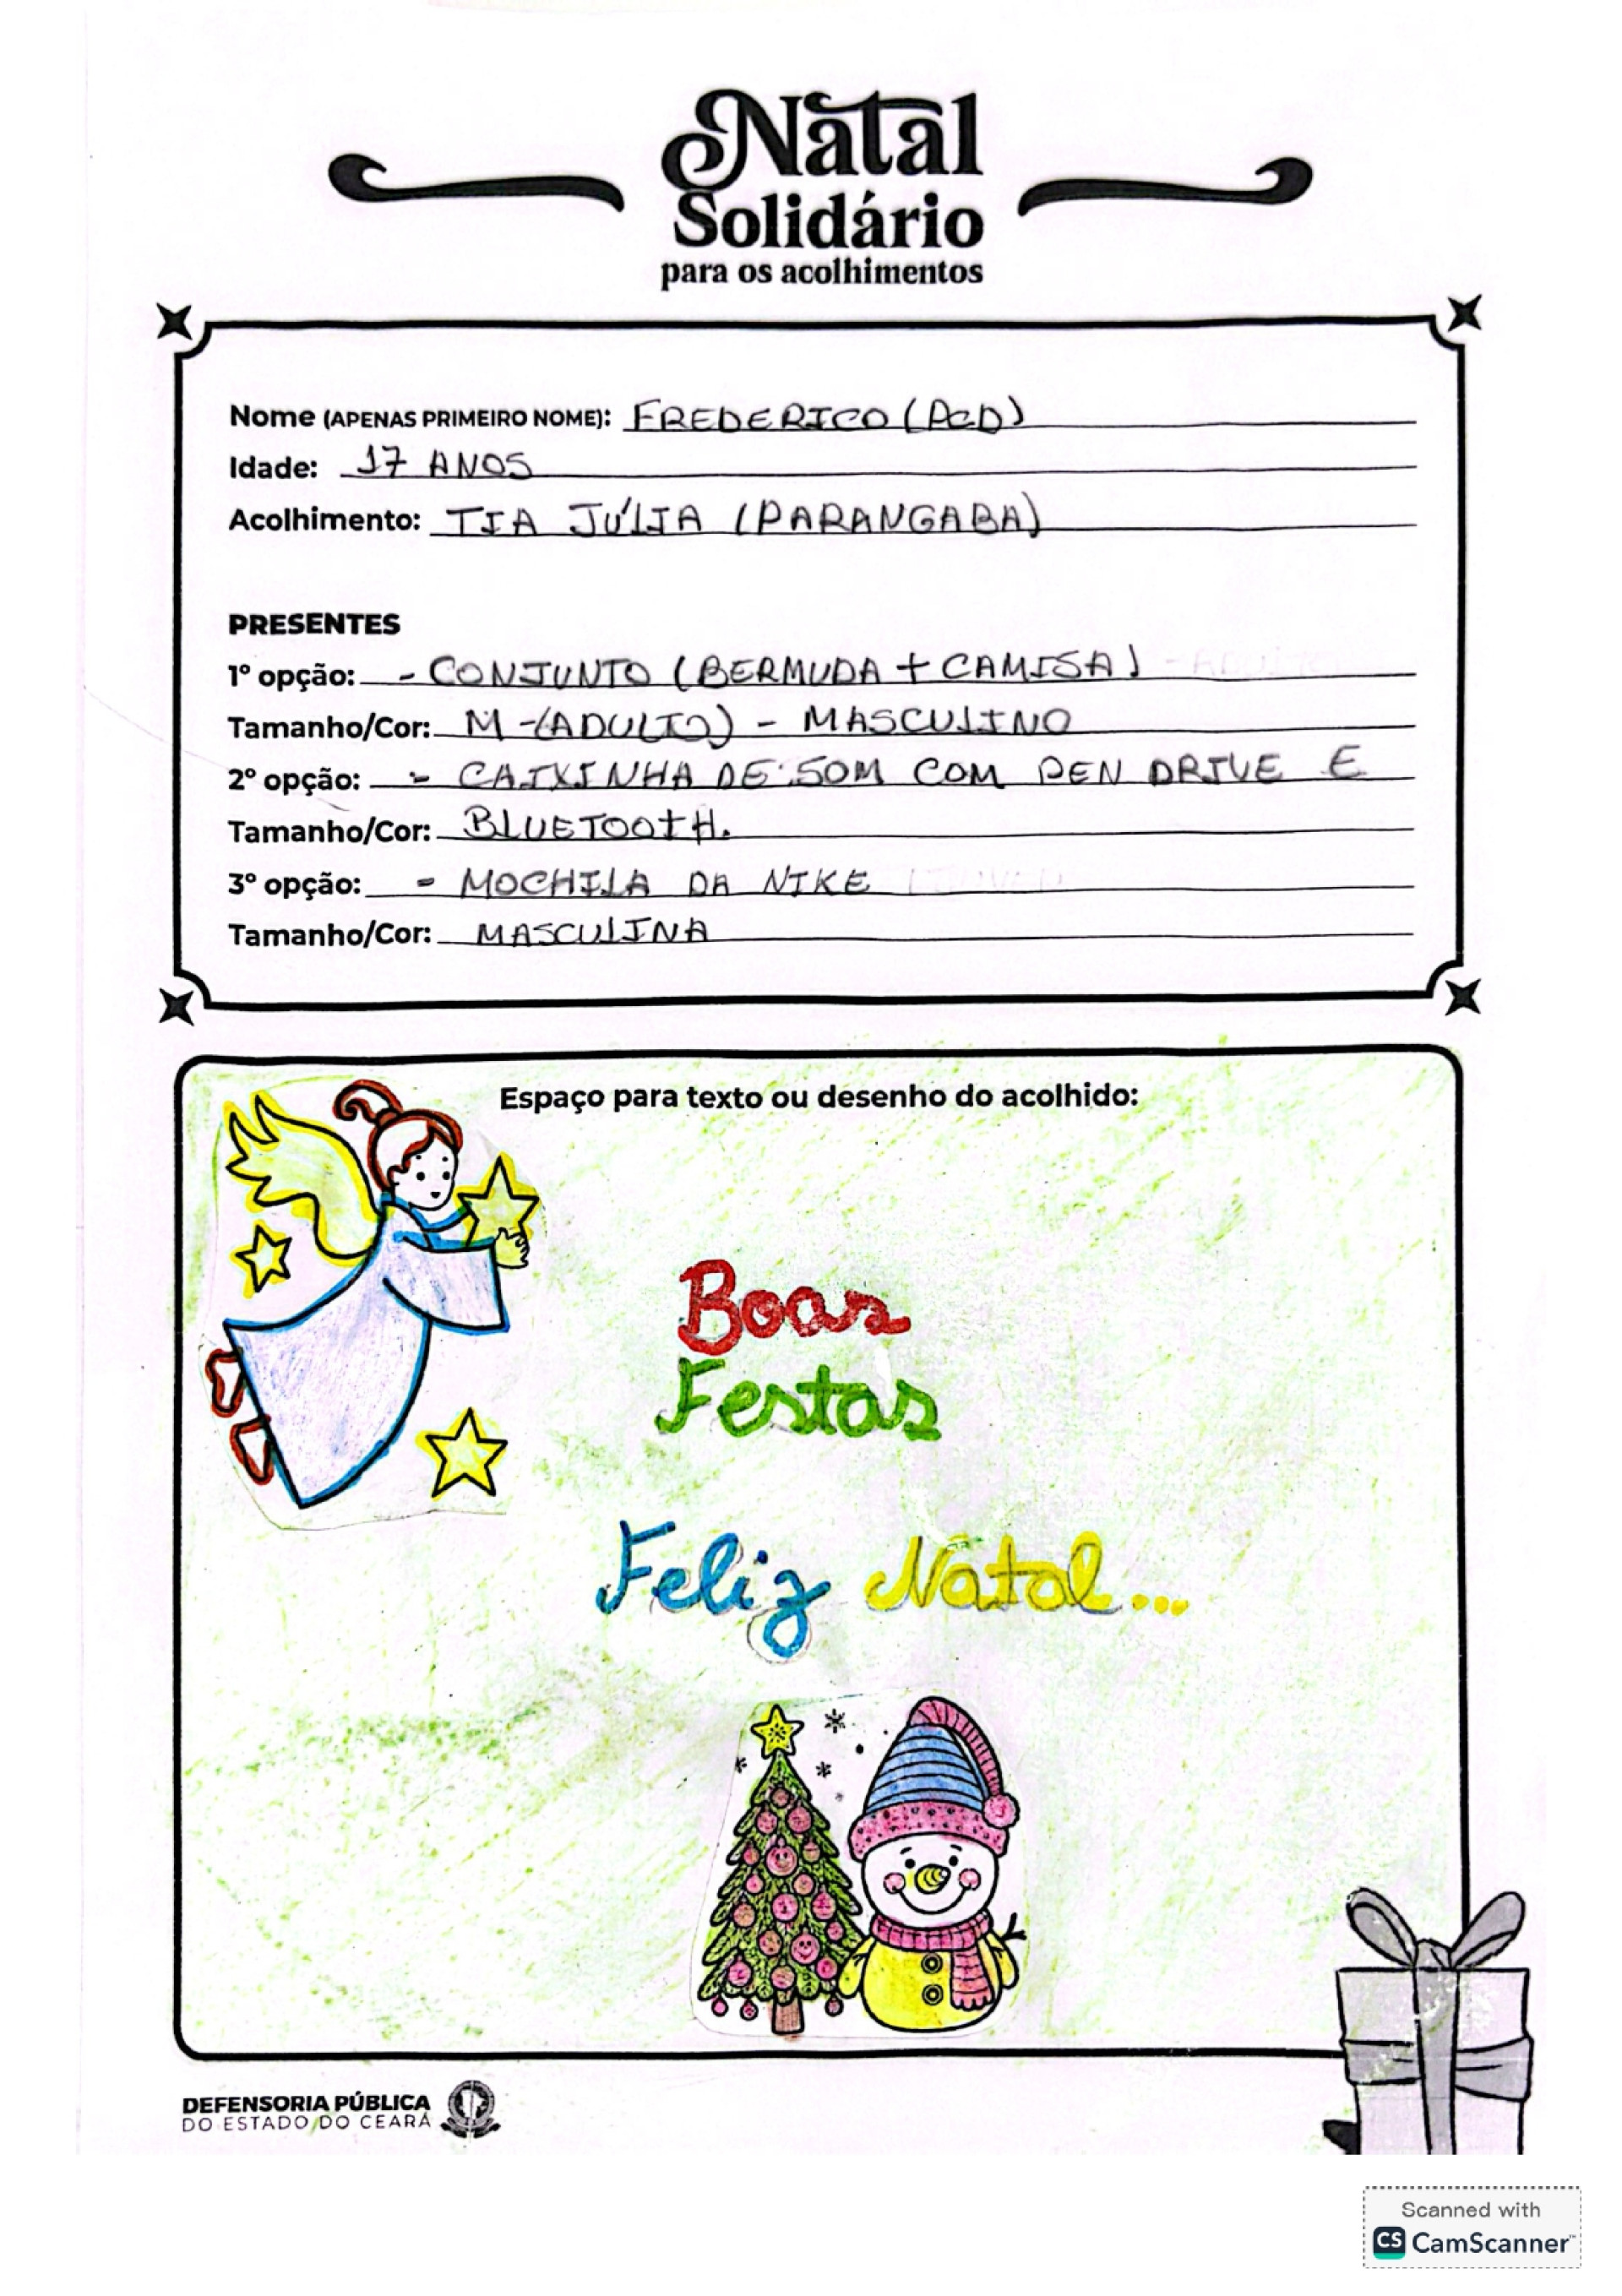 Natal
Solidário
para os acolhimentos
Nome (APENAS PRIMEIRO NOME): FREDERICO (PCD)
Idade: 17 ANOS
Acolhimento: TIA JÚLIA (PARANGABA)
PRESENTES
1º opção: - CONJUNTO (BERMUDA + CAMISA)
Tamanho/Cor: M - (ADULTO) - MASCULINO
2º opção: - CAIXINHA DE SOM COM PEN DRIVE E
Tamanho/Cor: BLUETOOTH.
3º opção: - MOCHILA DA NIKE
Tamanho/Cor: MASCULINA
Espaço para texto ou desenho do acolhido:
Boas
Festas
Feliz Natal...
DEFENSORIA PÚBLICA
DO ESTADO DO CEARÁ
Scanned with
CS CamScanner